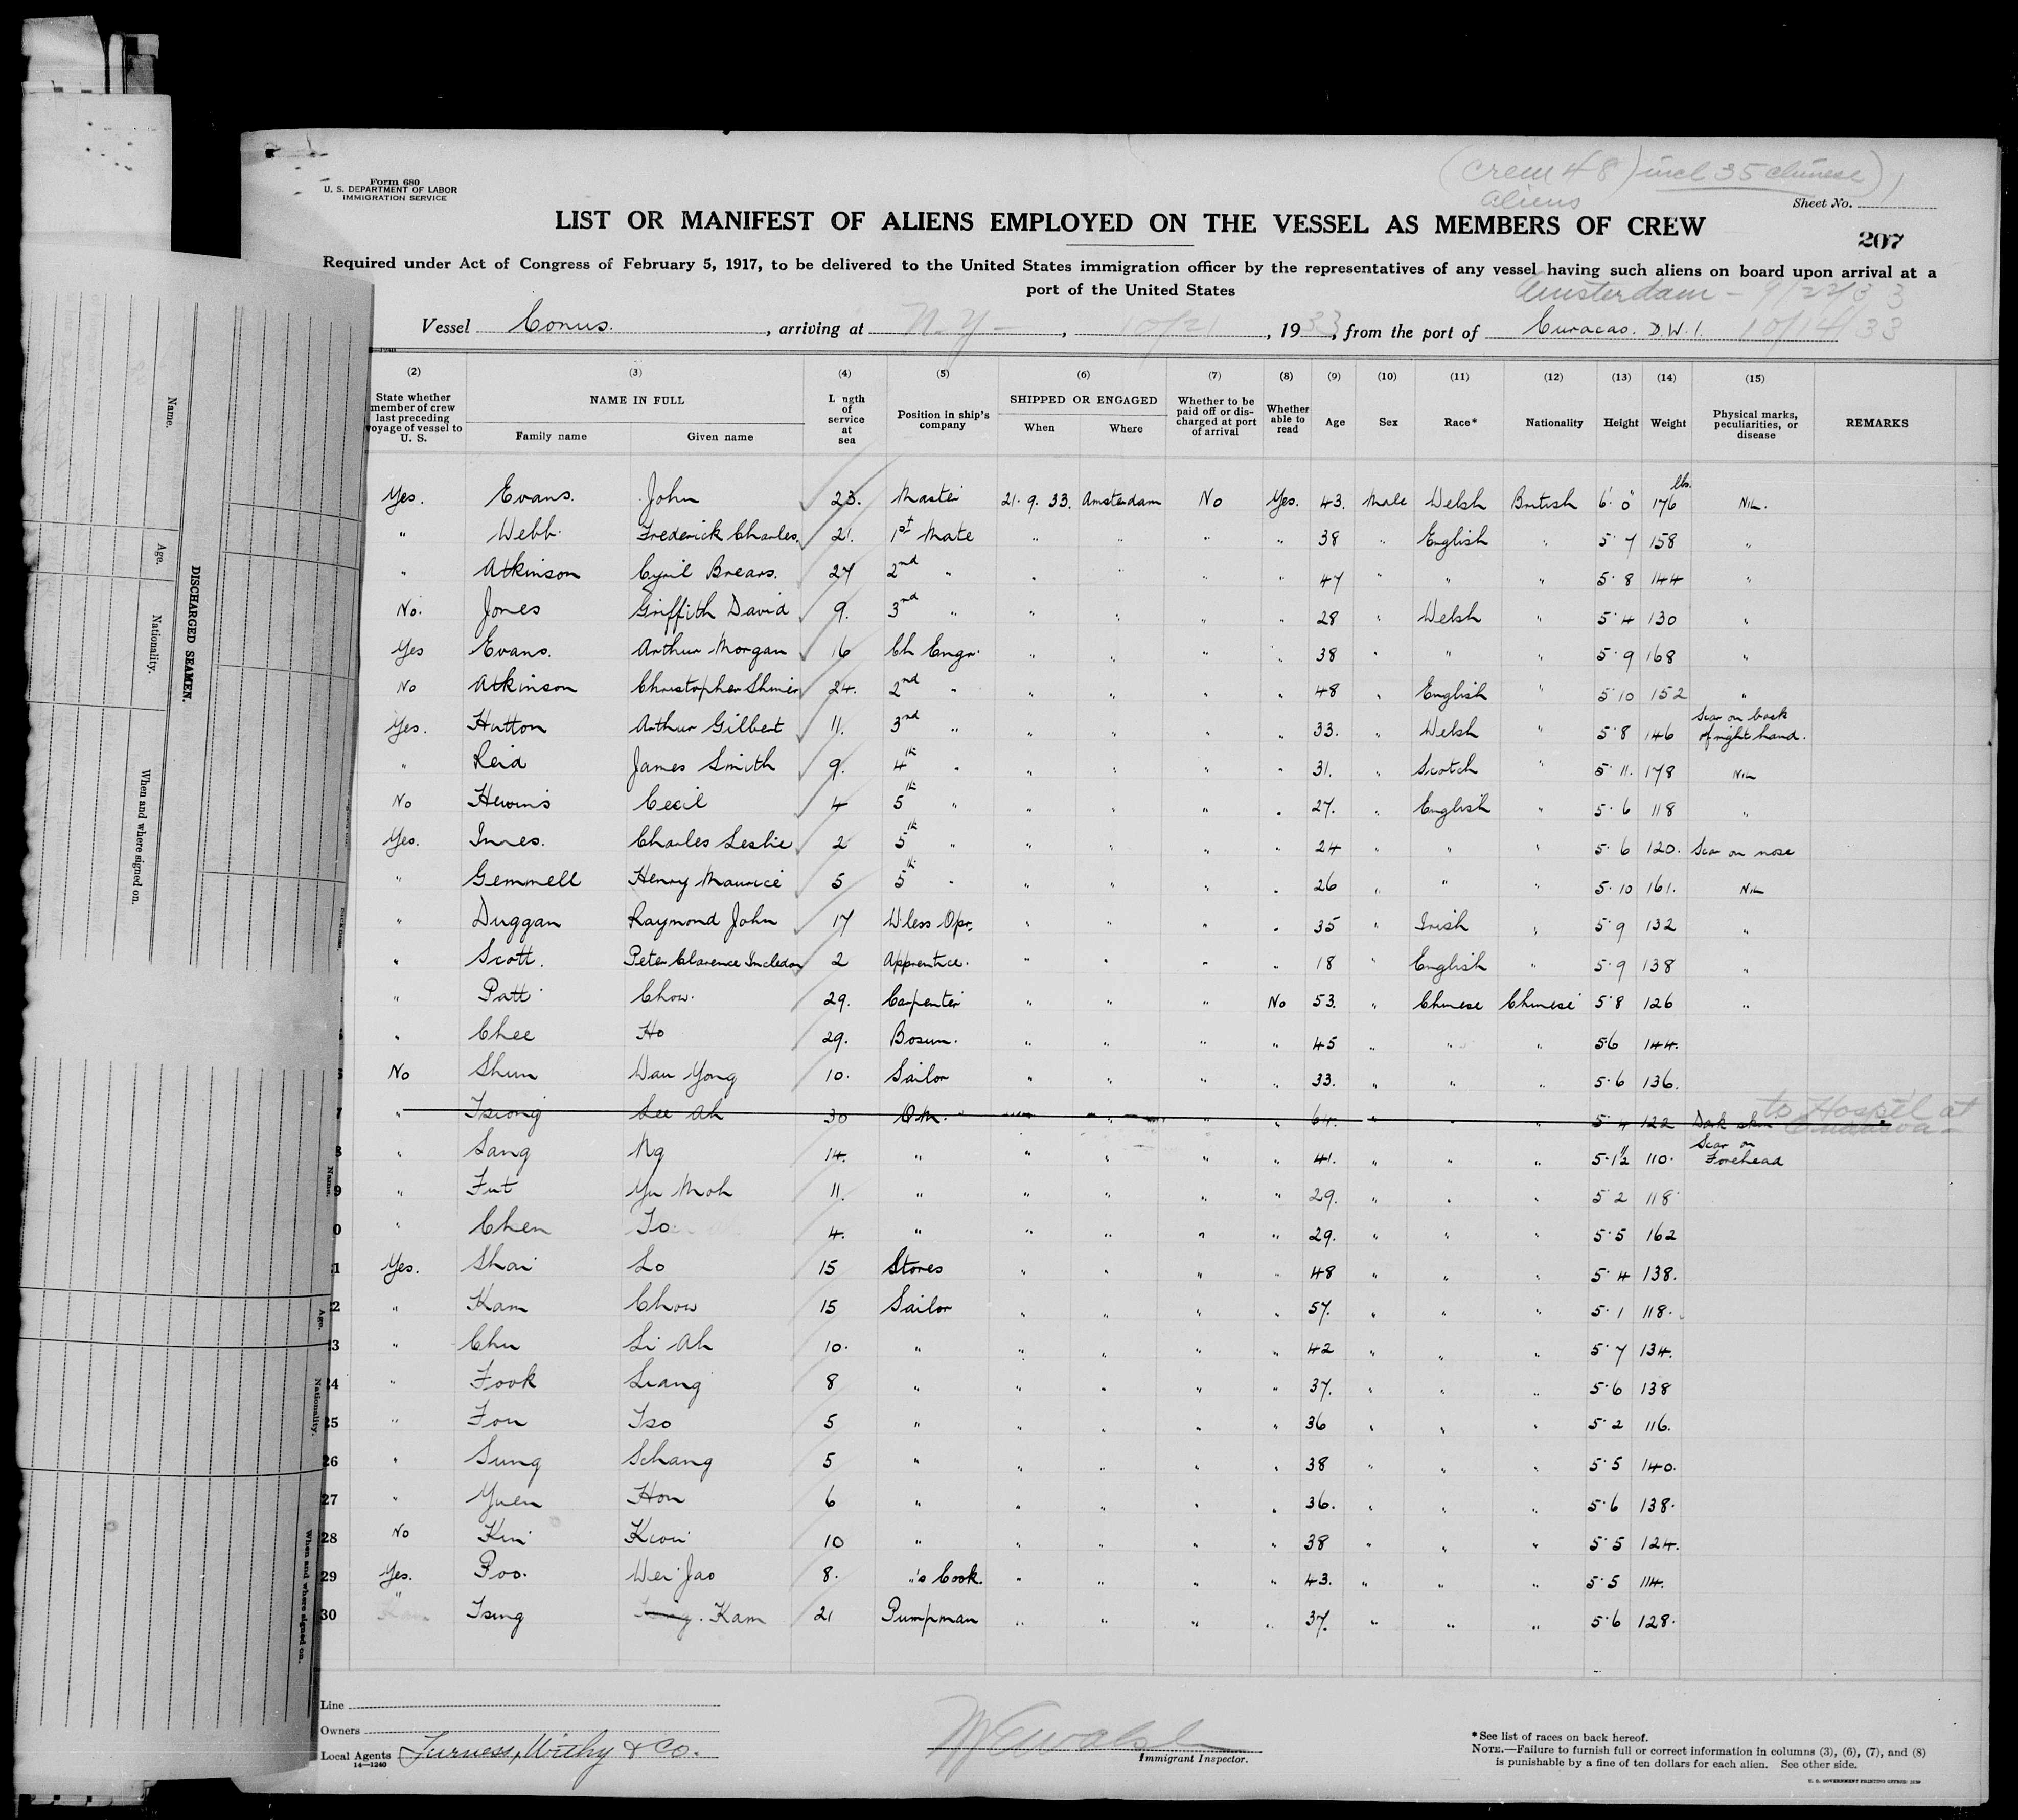 Form 680
U. S. DEPARTMENT OF LABOR
IMMIGRATION SERVICE
(Crew 48) incl 35 Chinese)
aliens
Sheet No. 1
LIST OR MANIFEST OF ALIENS EMPLOYED ON THE VESSEL AS MEMBERS OF CREW
207
Required under Act of Congress of February 5, 1917, to be delivered to the United States immigration officer by the representatives of any vessel having such aliens on board upon arrival at a
port of the United States
Amsterdam - 9/22/33
Vessel Conus. , arriving at N.Y - , 10/21 , 1933, from the port of Curacao. D.W.I. 10/14/33
(2) (3) (4) (5) (6) (7) (8) (9) (10) (11) (12) (13) (14) (15)
State whether member of crew last preceding voyage of vessel to U. S. NAME IN FULL Family name Given name Length of service at sea Position in ship's company SHIPPED OR ENGAGED When Where Whether to be paid off or discharged at port of arrival Whether able to read Age Sex Race* Nationality Height Weight Physical marks, peculiarities, or disease REMARKS
Yes. Evans. John 23. Master 21. 9. 33. Amsterdam No Yes. 43. Male Welsh British 6' 0" 176 lbs. Nil.
" Webb. Frederick Charles 21. 1st Mate " " " " 38 " English " 5' 7 158 "
" Atkinson Cyril Brears. 27 2nd " " " " " 47 " " " 5' 8 144 "
No. Jones Griffith David 9. 3rd " " " " " 28 " Welsh " 5' 4 130 "
Yes Evans. Arthur Morgan 16 Ch Engr. " " " " 38 " " " 5' 9 168 "
No Atkinson Christopher 24. 2nd " " " " " 48 " English " 5' 10 152 "
Yes. Hutton Arthur Gilbert 11. 3rd " " " " " 33. " Welsh " 5' 8 146 Scar on back of right hand.
" Reid James Smith 9. 4th " " " " " 31. " Scotch " 5' 11. 178 Nil
No Hewins Cecil 4 5th " " " " " 27. " English " 5' 6 118 "
Yes. Innes. Charles Leslie 2 5th " " " " " 24 " " " 5' 6 120. Scar on nose
" Gemmell Henry Maurice 5 5th " " " " " 26 " " " 5' 10 161. Nil
" Duggan Raymond John 17 W'less Opr. " " " " 35 " Irish " 5' 9 132 "
" Scott. Peter Clarence Incledon 2 Apprentice. " " " " 18 " English " 5' 9 138 "
" Patt Chow. 29. Carpenter " " " No 53. " Chinese Chinese 5' 8 126 "
" Chee Ho 29. Bosun. " " " " 45 " " " 5 6 144.
No Shun Wau Yong 10. Sailor " " " " 33. " " " 5' 6 136.
7 " Tsiong See Ah 30 Q.M. " " " " 64. " " " 5' 4 122 Dark skin to Hospl at
8 " Sang Ng 14. " " " " " 41. " " " 5' 1 1/2 110. Scar on Forehead
9 " Fut Yu Moh 11. " " " " " 29. " " " 5 2 118
0 " Chen To 4. " " " " " 29. " " " 5' 5 162
1 Yes. Shai Lo 15 Stores " " " " 48 " " " 5' 4 138.
2 " Kam Chow 15 Sailor " " " " 57. " " " 5' 1 118.
3 " Chu Li Ah 10. " " " " " 42 " " " 5' 7 134.
24 " Fook Liang 8 " " " " " 37. " " " 5' 6 138
25 " Fou Tso 5 " " " " " 36 " " " 5' 2 116.
26 " Sung Schang 5 " " " " " 38 " " " 5' 5 140.
27 " Yuen Hou 6 " " " " " 36. " " " 5' 6 138.
28 No Kin Kwoi 10 " " " " " 38 " " " 5' 5 124.
29 Yes. Poo. Wei Jao 8. "'s Cook. " " " " 43. " " " 5' 5 114.
30 " Tsing Kam 21 Pumpman " " " " 37. " " " 5' 6 128.
Line
Owners
Local Agents Furness, Withy & Co.
14—1240
Immigrant Inspector.
*See list of races on back hereof.
NOTE.—Failure to furnish full or correct information in columns (3), (6), (7), and (8)
is punishable by a fine of ten dollars for each alien. See other side.
U. S. GOVERNMENT PRINTING OFFICE
DISCHARGED SEAMEN.
Name.
Age.
Nationality.
When and where signed on.
Name.
Age.
Nationality.
When and where signed on.